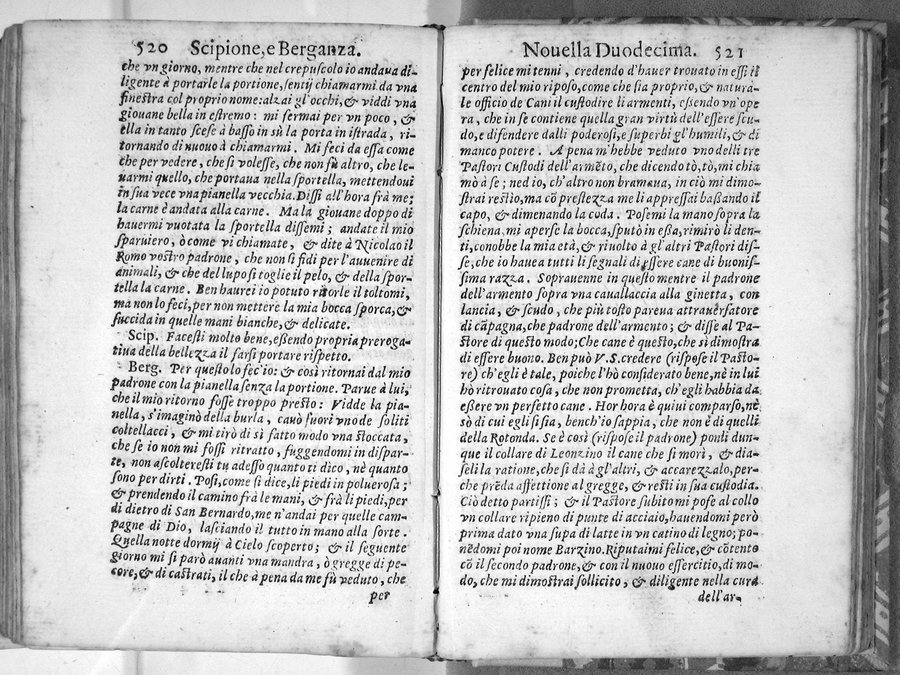 520 Scipione, e Berganza.
che vn giorno, mentre che nel crepuscolo io andaua di-
ligente à portarle la portione, sentij chiamarmi da vna
finestra col proprio nome: alzai gl'occhi, & viddi vna
giouane bella in estremo: mi fermai per vn poco, &
ella in tanto scese à basso in sù la porta in istrada, ri-
tornando di nuouo à chiamarmi. Mi feci da essa come
che per vedere, che si volesse, che non fù altro, che le-
uarmi quello, che portaua nella sportella, mettendoui
in sua vece vna pianella vecchia. Dissi all'hora frà me;
la carne è andata alla carne. Ma la giouane doppo di
hauermi vuotata la sportella dissemi; andate il mio
sparuiero, ò come vi chiamate, & dite à Nicolao il
Romo vostro padrone, che non si fidi per l'auuenire di
animali, & che del lupo si toglie il pelo, & della spor-
tella la carne. Ben haurei io potuto ritorle il toltomi,
ma non lo feci, per non mettere la mia bocca sporca, &
succida in quelle mani bianche, & delicate.
Scip. Facesti molto bene, essendo propria preroga-
tiua della bellezza il farsi portare rispetto.
Berg. Per questo lo fec'io: & così ritornai dal mio
padrone con la pianella senza la portione. Parue à lui,
che il mio ritorno fosse troppo presto: Vidde la pia-
nella, s'imaginò della burla, cauò fuori vno de soliti
coltellacci, & mi tirò di sì fatto modo vna stoccata,
che se io non mi fossi ritratto, fuggendomi in dispar-
te, non ascolteresti tu adesso quanto ti dico, nè quanto
sono per dirti. Posi, come si dice, li piedi in poluerosa;
& prendendo il camino frà le mani, & frà li piedi, per
di dietro di San Bernardo, me n'andai per quelle cam-
pagne di Dio, lasciando il tutto in mano alla sorte.
Quella notte dormij à Cielo scoperto; & il seguente
giorno mi si parò auanti vna mandra, ò gregge di pe-
core, & di castrati, il che à pena da me fù veduto, che
per
Nouella Duodecima. 521
per felice mi tenni, credendo d'hauer trouato in essi il
centro del mio riposo, come che sia proprio, & natura-
le officio de Cani il custodire li armenti, essendo vn'ope
ra, che in se contiene quella gran virtù dell'essere scu-
do, e difendere dalli poderosi, e superbi gl'humili, & di
manco potere. A pena m'hebbe veduto vno delli tre
Pastori Custodi dell'armẽto, che dicendo tò, tò, mi chia
mò à se; ned io, ch'altro non bramaua, in ciò mi dimo-
strai restìo, ma cõ prestezza me li appressai bassando il
capo, & dimenando la coda. Posemi la mano sopra la
schiena, mi aperse la bocca, sputò in essa, rimirò li den-
ti, conobbe la mia età, & riuolto à gl'altri Pastori dis-
se, che io hauea tutti li segnali di essere cane di buonis-
sima razza. Soprauenne in questo mentre il padrone
dell'armento sopra vna cauallaccia alla ginetta, con
lancia, & scudo, che più tosto pareua attrauersatore
di cãpagna, che padrone dell'armento; & disse al Pa-
store di questo modo; Che cane è questo, che si dimostra
di essere buono. Ben può V.S. credere (rispose il Pasto-
re) ch'egli è tale, poiche l'hò considerato bene, nè in lui
hò ritrouato cosa, che non prometta, ch'egli habbia da
essere vn perfetto cane. Hor hora è quiui comparso, nè
sò di cui egli si sia, bench'io sappia, che non è di quelli
della Rotonda. Se è così (rispose il padrone) ponli dun-
que il collare di Leonzino il cane che si morì, & dia-
seli la ratione, che si dà à gl'altri, & accarezzalo, per-
che prẽda affettione al gregge, & resti in sua custodia.
Ciò detto partissi; & il Pastore subito mi pose al collo
vn collare ripieno di punte di acciaio, hauendomi però
prima dato vna supa di latte in vn catino di legno; po-
nẽdomi poi nome Barzino. Riputaimi felice, & cõtento
cõ il secondo padrone, & con il nuouo essercitio, di mo-
do, che mi dimostrai sollicito, & diligente nella cura
dell'ar-